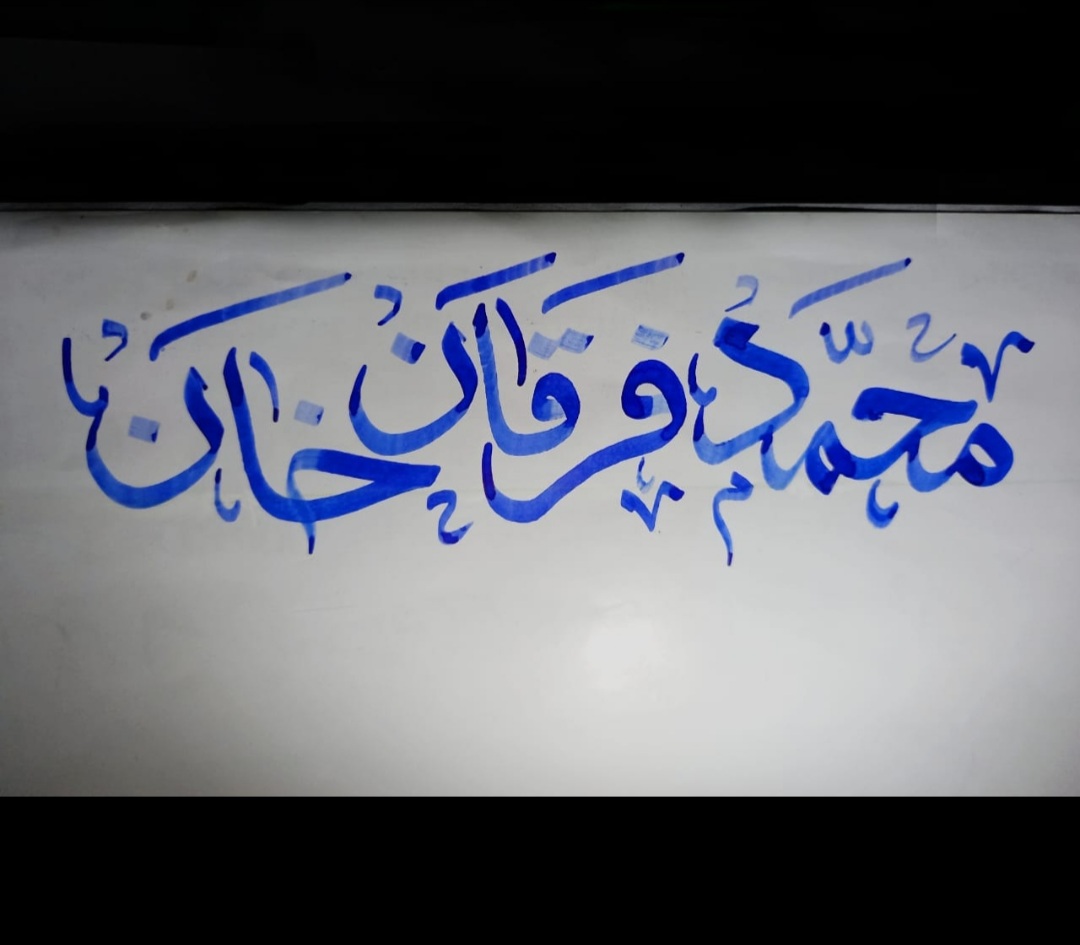 محمّد فرقان خان